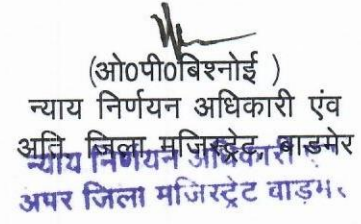 (ओ0पी0बिश्नोई )
न्याय निर्णयन अधिकारी एंव
अति. जिला मजिस्ट्रेट, बाडमेर
न्याय निर्णयन अधिकारी
अपर जिला मजिस्ट्रेट बाड़मेर